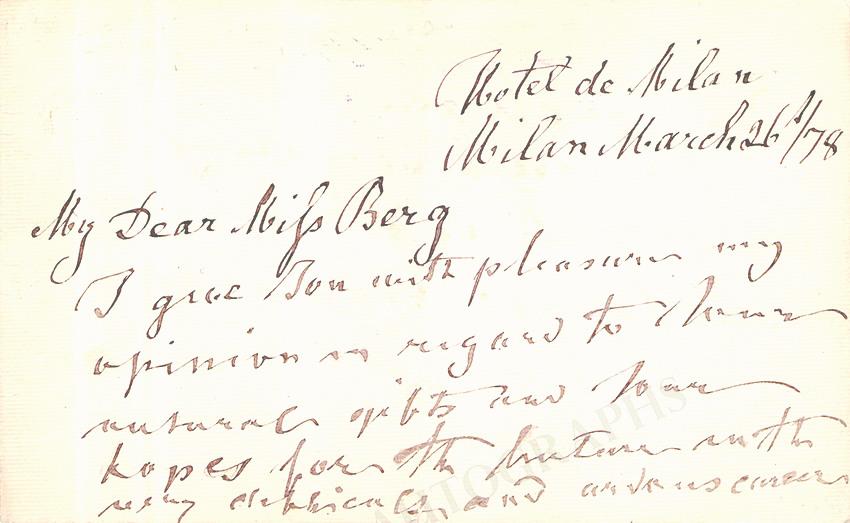 Hotel de Milan
Milan March 26th/78
My Dear Miss Berg
I give You with pleasure my
opinion in regard to Your
natural gifts and Your
hopes for the future in the
very difficult and arduous career
AUTOGRAPHS